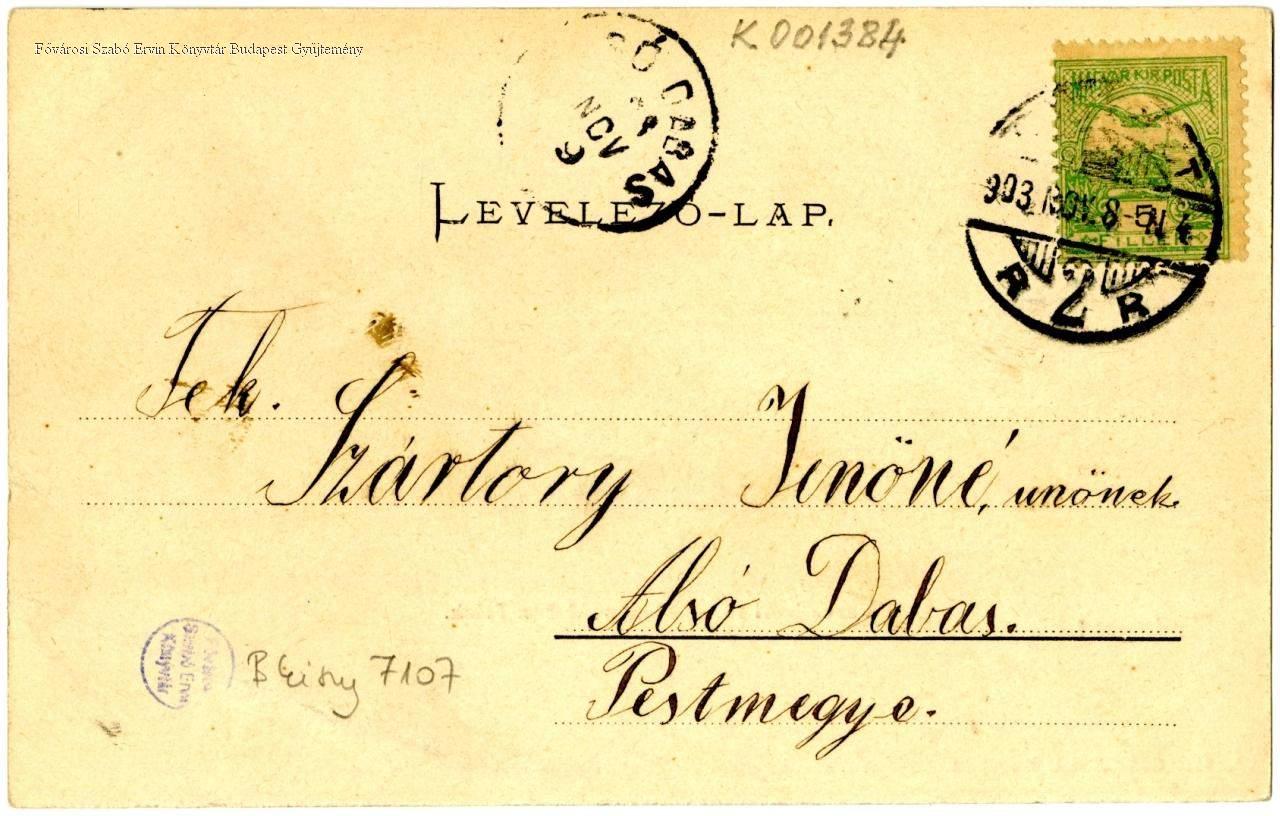 Fővárosi Szabó Ervin Könyvtár Budapest Gyűjtemény
K 001384
MAGYAR KIR. POSTA
FILLÉR
903 NOV. 8-5N
R 2 R
SÓ DABAS
NOV
9
LEVELEZŐ-LAP.
Tek.
Szártory Jenőné, unőnek.
Alsó Dabas.
Pestmegye.
Szabó Ervin
Könyvtár
7107